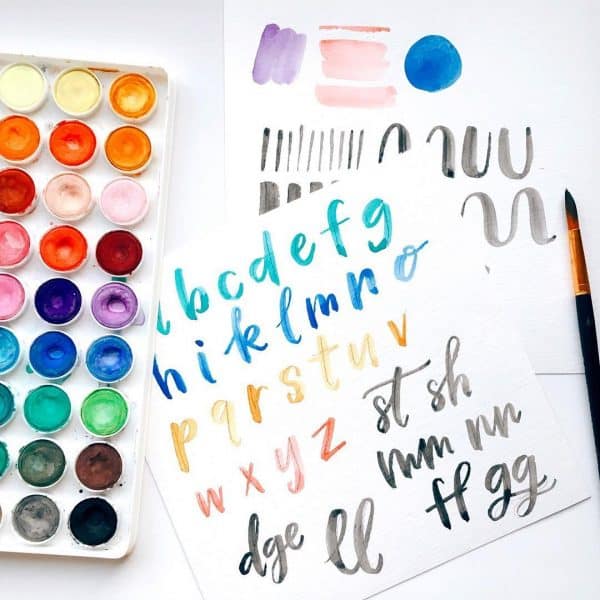 abcdefg
hiklmno
pqrstuv
wxyz
st sh
mm nn
ff gg
dge ll